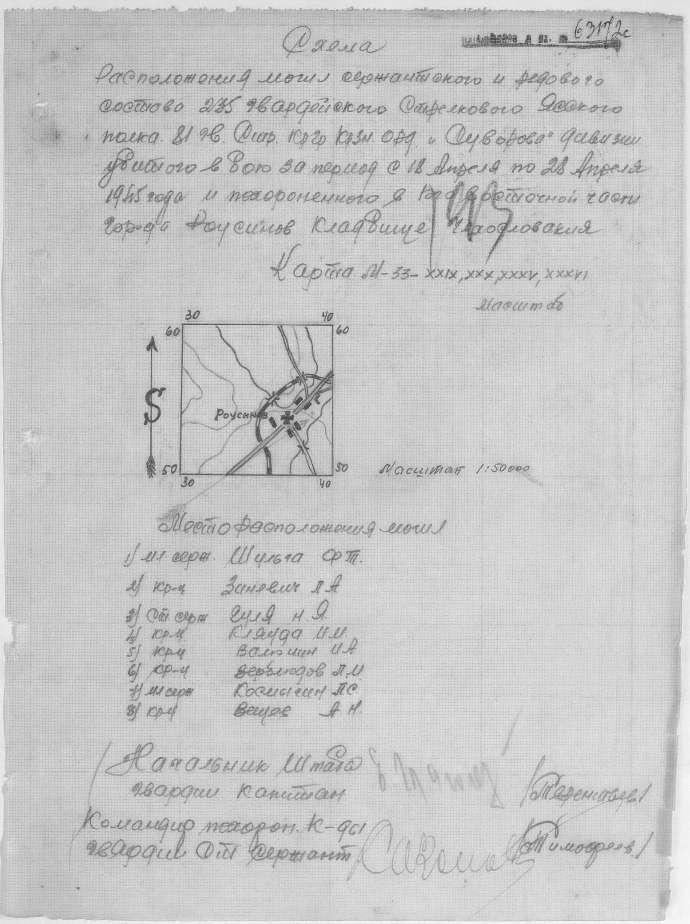 63172с
Схема
Расположения могил сержантского и редового
состово 235 гвардейского Стрелкового Ясского
полка. 81 гв. Стр. Кр. Кр.Зн. орд. „Суворова" дивизии
убитого в бою за период с 18 Апреля по 28 Апреля
1945 года и похороненного в восточной части
города Роусинов Кладвище Чехословакия
Карта М-33-XXIX, XXX, XXXV, XXXVI
Масштаб
30 40
60 60
S
Роусинов
50 50
30 40
Масштап 1:50000
Место расположения могил
1) мл серж. Шульга Ф Т.
2) кр-ц Заневич Л А
3) Ст серж Гуля Н. Я.
4) кр-ц Кляуда И.М.
5) кр-ц И А
6) кр-ц Л. М.
7) мл серж Космынин П С.
8) кр-ц Вещев А Н.
Начальник Штаба
гвардии капитан /Терентьев/
Командир похорон. К-ды
гвардии Ст Сержант /Тимофеев/